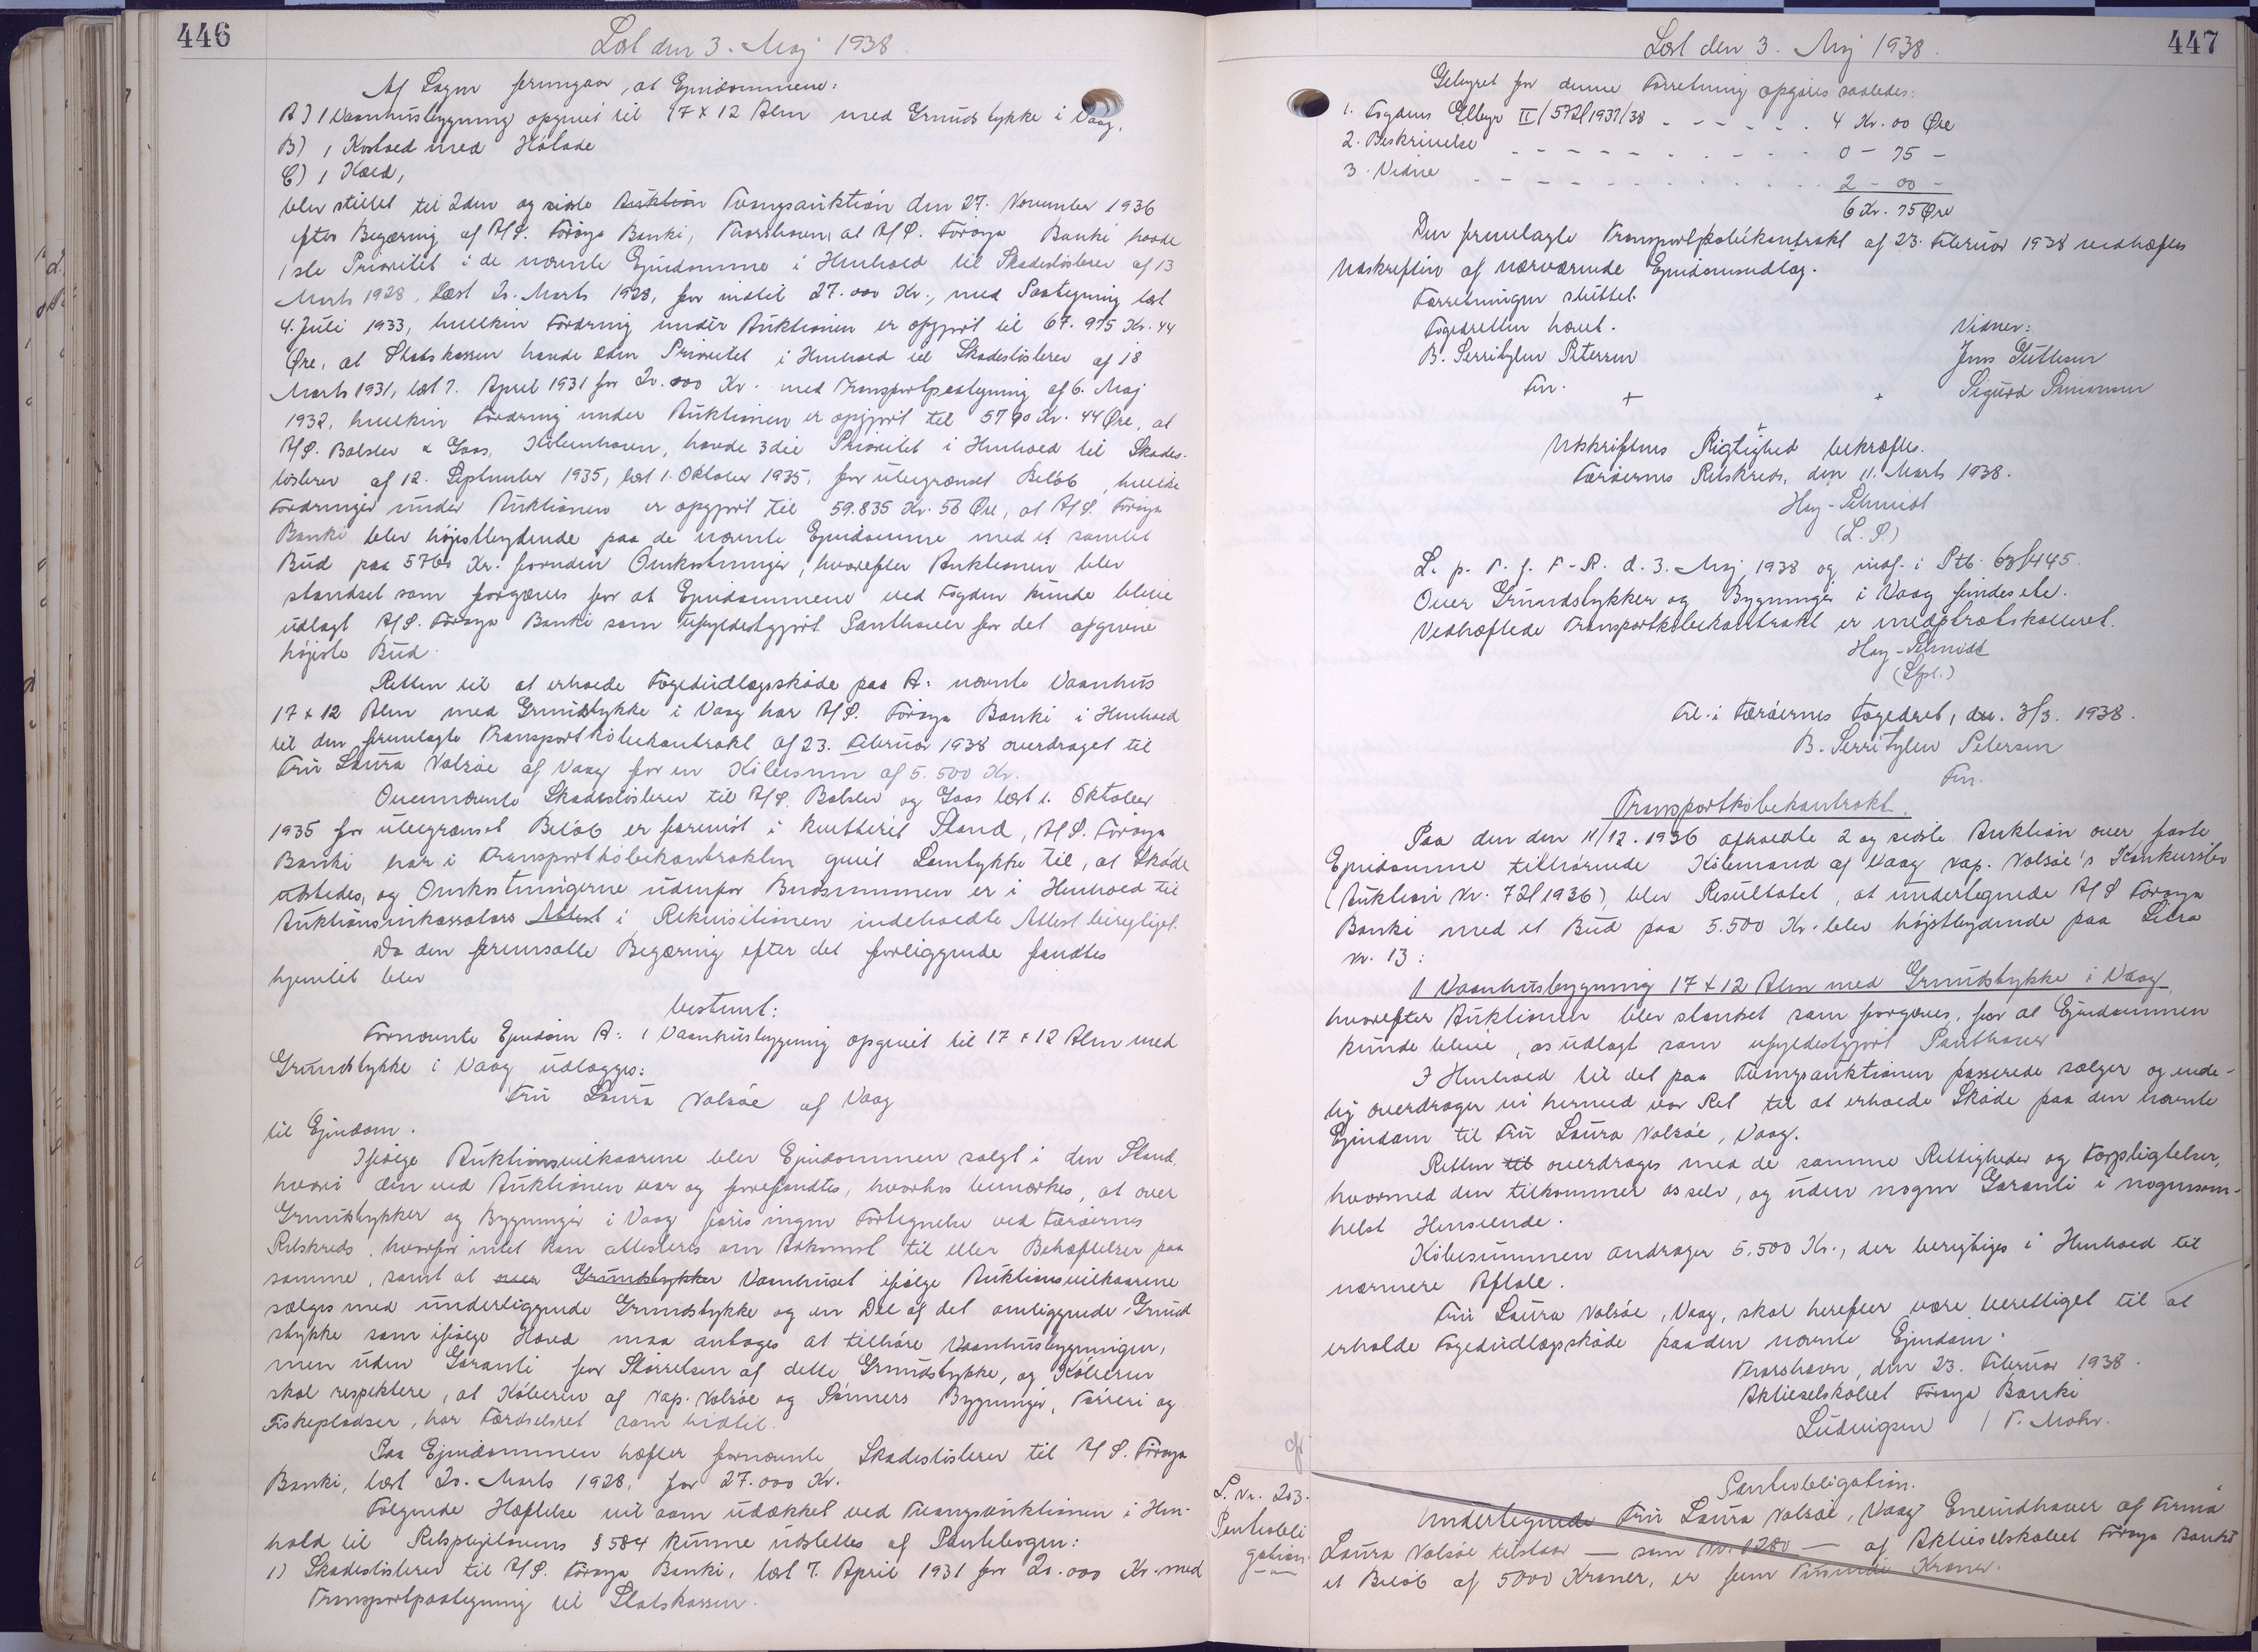 446
Læst den 3. Maj 1938
Af Sagen fremgaar, at Ejendommene:
A) 1 Vaanhusbygning opgivet til 17 x 12 Alen med Grundstykke i Vaag,
B) 1 Kostald med Hølade
C)
blev stillet til 2den og sidste Auktion Tvangsauktion den 27. November 1936
efter Begæring af A/S. Føroya Banki, Thorshavn, at A/S. Føroya Banki havde
1ste Prioritet i de nævnte Ejendomme i Henhold til Skadesløsbrev af 13
Marts 1928, læst 20. Marts 1928, for indtil 27.000 Kr., med Paategning læst
4. Juli 1933, hvilken Fordring under Auktionen er opgjort til 67.975 Kr. 44
Øre, at Statskassen havde 2den Prioritet i Henhold til Skadesløsbrev af 18
Marts 1931, læst 7. April 1931 for 20.000 Kr. med Transportpaategning af 6. Maj
1932, hvilken Fordring under Auktionen er opgjort til 5790 Kr. 44 Øre, at
A/S. Balslev & Gaas, København, havde 3die Prioritet i Henhold til Skades-
løsbrev af 12. September 1935, læst 1. Oktober 1935, for ubegrænset Beløb, hvilke
Fordringer under Auktionen er opgjort til 59.835 Kr. 58 Øre, at A/S. Føroya
Banki blev højstbydende paa de nævnte Ejendomme med et samlet
Bud paa 5760 Kr. foruden Omkostninger, hvorefter Auktionen blev
standset som forgæves for at Ejendommene ved Fogden kunde blive
udlagt A/S. Føroya Banki som ufyldestgjort Panthaver for det afgivne
højeste Bud.
Retten til at erholde Fogedudlægsskøde paa A: nævnte Vaanhus
17 x 12 Alen med Grundstykke i Vaag har A/S. Føroya Banki i Henhold
til den fremlagte Transportkøbekontrakt af 23. Februar 1938 overdraget til
Fru Laura Valsøe af Vaag for en Købesum af 5.500 Kr.
Ovennævnte Skadesløsbrev til A/S. Balslev og Gaas læst 1. Oktober
1935 for ubegrænset Beløb er forevist i kvitteret Stand, A/S. Føroya
Banki har i Transportkøbekontrakten givet Samtykke til, at Skøde
udstedes, og Omkostningerne udenfor Budsummen er i Henhold til
Auktionsinkassators Attest i Rekvisitionen indeholdte Attest berigtiget.
Da den fremsatte Begæring efter det foreliggende fandtes
hjemlet blev
bestemt:
Fornævnte Ejendom A: 1 Vaanhusbygning opgivet til 17 x 12 Alen med
Grundstykke i Vaag udlægges:
Fru Laura Valsøe af Vaag
til Ejendom.
Ifølge Auktionsvilkaarene blev Ejendommen solgt i den Stand,
hvori den ved Auktionen var og forefandtes, hvorhos bemærkes, at over
Grundstykker og Bygninger i Vaag føres ingen Fortegnelse ved Færøernes
Retskreds, hvorfor intet kan attesteres om Adkomst til eller Behæftelser paa
samme, samt at over Grundstykker Vaanhuset ifølge Auktionsvilkaarene
sælges med underliggende Grundstykke og en Del af det omliggende Grund
stykke som ifølge Hævd maa antages at tilhøre Vaanhusbygningen,
men uden Garanti for Størrelsen af dette Grundstykke, og Køberen
skal respektere, at Køberen af Nap. Valsøe og Sønners Bygninger, Tørreri og
Fiskepladser, har Færdselsret som hidtil.
Paa Ejendommen hæfter fornævnte Skadesløsbrev til A/S. Føroya
Banki, læst 20. Marts 1928, for 27.000 Kr.
Følgende Hæftelse vil som udækket ved Tvangsauktionen i Hen-
hold til Retsplejelovens § 584 kunne udslettes af Pantebogen:
1) Skadesløsbrev til A/S. Føroya Banki, læst 7. April 1931 for 20.000 Kr. med
Transportpaategning til Statskassen.
447
Læst den 3. Maj 1938.
Gebyret for denne Forretning opgøres saaledes:
1. Fogdens Gebyr II/572/1937/38 - - - - - - 4 Kr. 00 Øre
2. Beskrivelse - - - - - - - - - 0 - 75 -
3. Vidne - - - - - - - - - 2 - 00 -
6 Kr. 75 Øre
Den fremlagte Transportkøbekontrakt af 23. Februar 1938 vedhæftes
Udskriften af nærværende Ejendomsudlæg.
Forretningen sluttet.
Fogedretten hævet.
Vidner:
B. Serritzlew Petersen
Fm.
Jens
Sigurd Simonsen
Udskriftens Rigtighed bekræftes.
Færøernes Retskreds, den 11. Marts 1938.
Hay-Schmidt
(L. S.)
L. p. T. f. F-R. d. 3. Maj 1938 og indf. i Ptb. 63/445.
Over Grundstykker og Bygninger i Vaag findes etc.
Vedhæftede Transportkøbekontrakt er medprotokolleret.
Hay-Schmidt
Frl. i Færøernes Fogedret, den. 3/3. 1938.
B. Serritzlew Petersen
Fm.
Transportkøbekontrakt.
Paa den den 11/12. 1936 afholdte 2 og sidste Auktion over faste
Ejendomme tilhørende Købmand af Vaag Nap. Valsøe's Konkursbo
(Auktion Nr. 72/1936), blev Resultatet, at undertegnede A/S Føroya
Banki med et Bud paa 5.500 Kr. blev højstbydende paa Litra
nr. 13:
1 Vaanhusbygning 17 x 12 Alen med Grundstykke i Vaag,
hvorefter Auktionen blev standset som forgæves, for at Ejendommen
kunde blive os udlagt som ufyldestgjort Panthaver
I Henhold til det paa Tvangsauktionen passerede sælger og ende-
lig overdrager vi hermed vor Ret til at erholde Skøde paa den nævnte
Ejendom til Fru Laura Valsøe, Vaag.
Retten til overdrages med de samme Rettigheder og Forpligtelser,
hvormed den tilkommer os selv, og uden nogen Garanti i nogensom-
helst Henseende.
Købesummen andrager 5.500 Kr., der berigtiges i Henhold til
nærmere Aftale.
Fru Laura Valsøe, Vaag, skal herefter være berettiget til at
erholde Fogedudlægsskøde paa den nævnte Ejendom.
Thorshavn, den 23. Februar 1938.
Aktieselskabet Føroya Banki
Ludvigsen / T. Mohr.
L. Nr. 203.
Pantobli
gation.
Pantobligation.
Undertegnede Fru Laura Valsøe, Vaag Eneindehaver af Firma
Laura Valsøe tilstaar — som — af Aktieselskabet Føroya Banki
et Beløb af 5000 Kroner, er fem Tusinde Kroner.